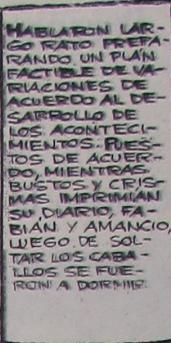 HABLARON LAR-
GO RATO PREPA-
RANDO UN PLAN
FACTIBLE DE VA-
RIACIONES DE
ACUERDO AL DE-
SARROLLO DE
LOS ACONTECI-
MIENTOS. PUES-
TOS DE ACUER-
DO, MIENTRAS
BUSTOS Y CRIS-
MAS IMPRIMIAN
SU DIARIO, FA-
BIAN Y AMANCIO,
LUEGO DE SOL-
TAR LOS CABA-
LLOS SE FUE-
RON A DORMIR.